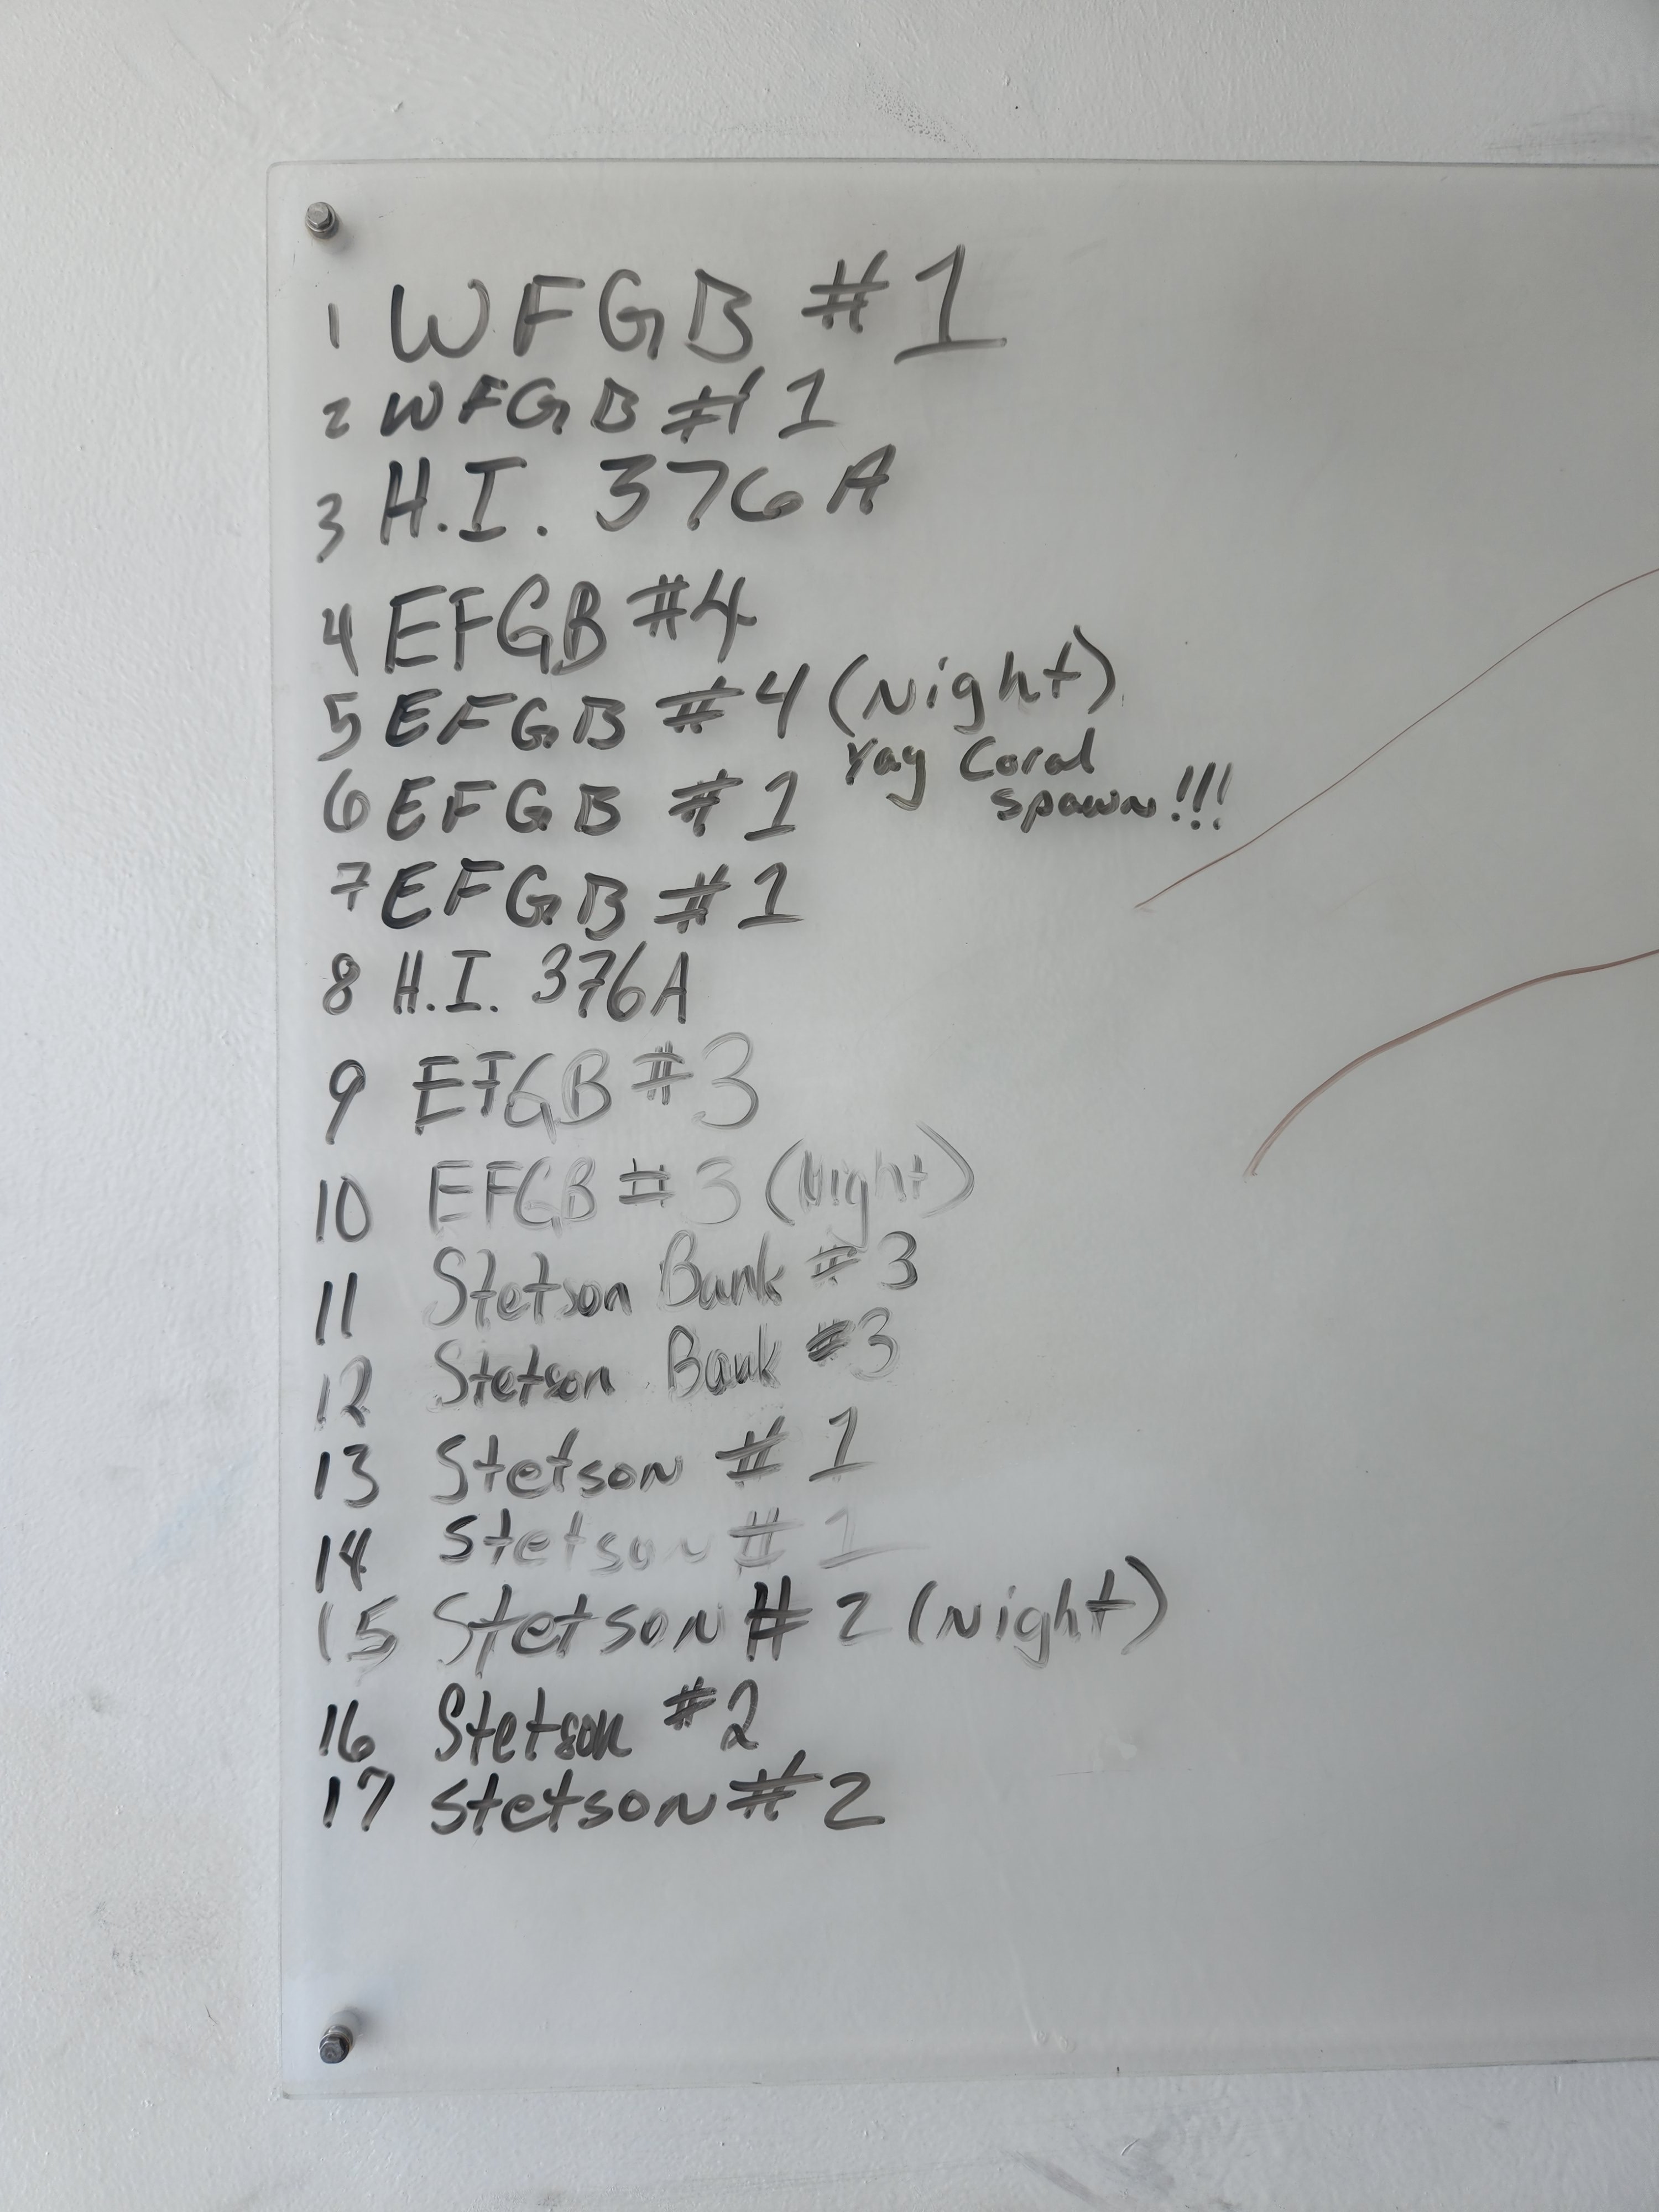 1 WFGB #1
2 WFGB #1
3 H.I. 376A
4 EFGB #4
5 EFGB #4 (Night)
Yay Coral
spawn!!!
6 EFGB #1
7 EFGB #1
8 H.I. 376A
9 EFGB #3
10 EFGB #3 (Night)
11 Stetson Bank #3
12 Stetson Bank #3
13 Stetson #1
14 Stetson #1
15 Stetson #2 (Night)
16 Stetson #2
17 Stetson #2